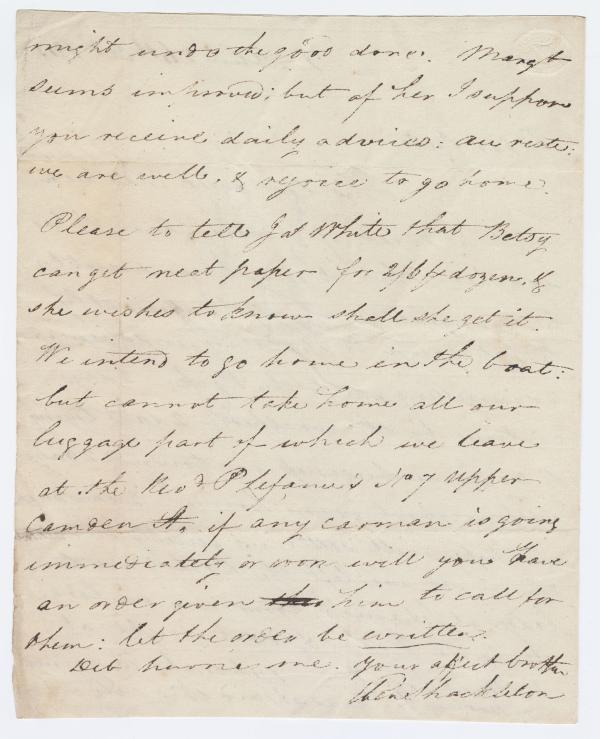 might undo the good done. Margt
seems improved; but of her I suppose
you receive daily advices: au reste:
we are well, & rejoice to go home.
Please to tell Jas White that Betsy
can get neat paper for 2/6 pr dozen, &
she wishes to know shall she get it.
We intend to go home in the boat:
but cannot take home all our
luggage part of which we leave
at the Revd P Lefanu's No 7 upper
Camden St. if any carman is going
immediately or soon will you have
an order given him to call for
them: let the order be written.
Deb hurries me. Your affect brother
Shackleton